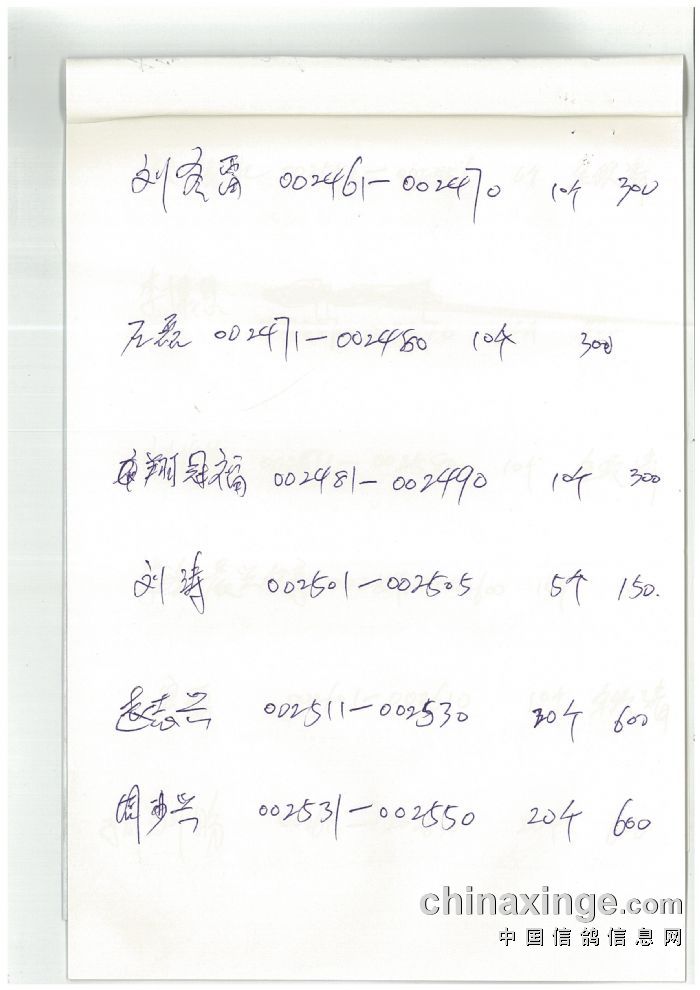 刘冬雷 002461－002470 10个 300
石磊 002471－002480 10个 300
翔冠福 002481－002490 10个 300
刘涛 002501－002505 5个 150.
赵志兴 002511－002530 20个 600
周步兴 002531－002550 20个 600
chinaxinge.com
中国信鸽信息网